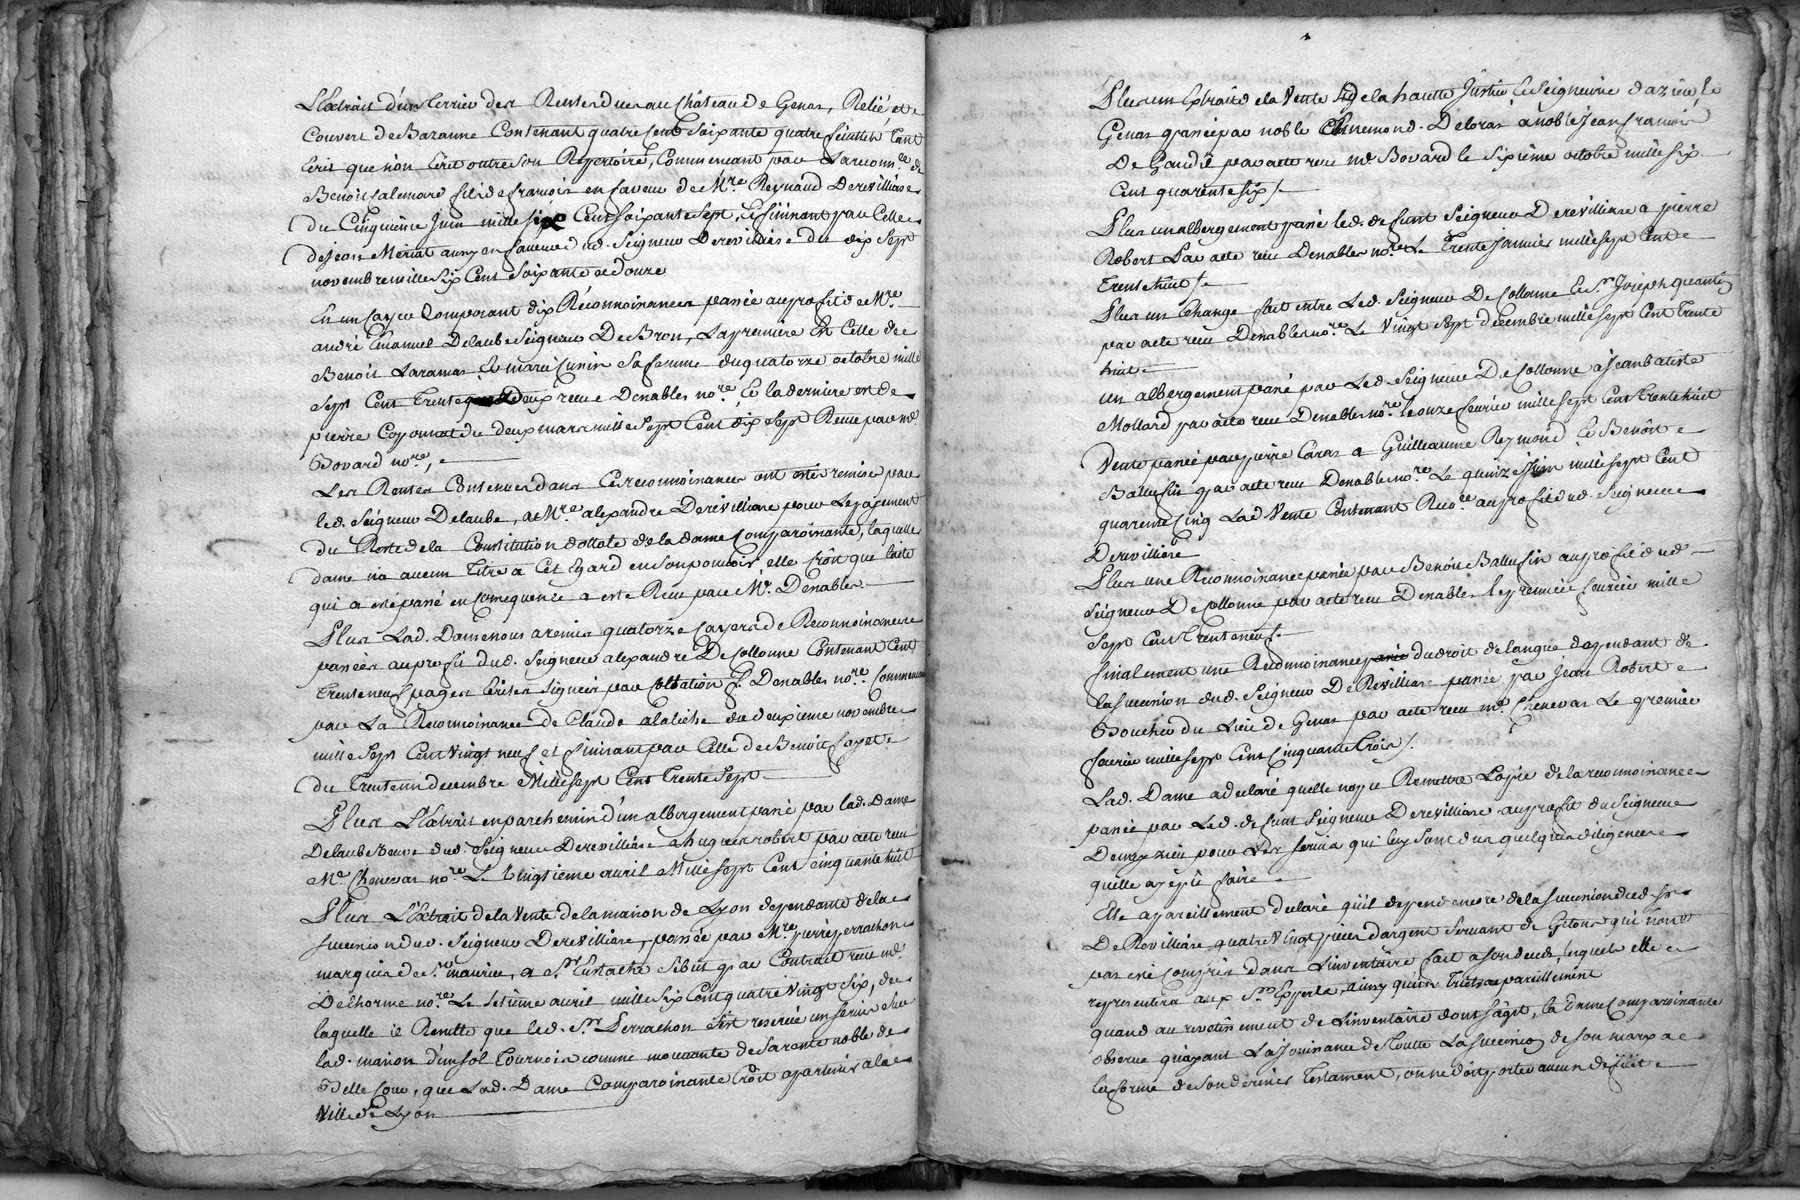 L'Extrait d'un terrier des Rentes dues au Château de Genas, Relié et
Couvert de Bazanne Contenant quatre cent soixante quatre feuillets tant
Ecrit que non Ecrit outre son Repertoire, Commencant par La reconn.ce de
Benoit Salemard fils de francois en faveur de M.re Reynaud De revilliase
du Cinquieme Juin mille six Cent soixante sept, Et finissant par Celle
de jean Meriat aussy en faveur dud. Seigneur De revilliase du dix sept
novembre mille six Cent Soixante et douze
Et un Cayer Composant dix Reconnoissances passée au profit de M.re
andré Emanuel De laube Seigneur De Bron, La premiere Est Celle de
Benoit Laramas Et marie Cunin Sa femme du quatorze octobre mille
sept Cent Trente deux receue Denables no.re, Et la derniere est de
pierre Coponnat du deux mars mille Sept Cent dix sept Receue par m.e
Bovard no.re,
Les Rentes Contenues dans Ces reconnoissances ont ettés remise par
led. Seigneur Delaube, a M.re alexandre De revilliase pour Le payement
du Reste de la Constitution dottale de la dame Comparoissante, laquelle
dame n'a aucun Titre a Cet Egard en son pouvoir, elle Croit que l'acte
qui a esté passé en Consequence a esté Receu par M.e Denables.
Plus Lad. Dame nous a remis quatorze Cayers de Reconnoissances
passées au profit dud. Seigneur alexandre De Collonne Contenant Cent
Trente neuf pages Ecrites Signées par Collation Denables no.re Commencant
par La Reconnoissance de Claude alatiche du deuxieme novembre
mille Sept Cent Vingt neuf et finissant par Celle de Benoit fayet
du Trente un decembre Mille Sept Cent Trente Sept
Plus L'Extrait en parchemin d'un albergement passé par lad. Dame
De laube Veuve dud. Seigneur De revilliase a hugues robert par acte receu
M.e Chenevas no.re Le Vingtieme avril Mille Sept Cent Cinquante huit
Plus L'Extrait de la Vente de la maison de Lyon dependante de la
succession dud. Seigneur De revilliase, passée par M.re pierre perrachon
marquis de S.t maurice, a S.r Eustache Sibut par Contrait receu m.e
Delhorme no.re Le Setieme avril mille Six Cent quatre Vingt Six, de
laquelle il Resulte que led. S.r Perrachon s'est reservée un servis sur
lad. maison d'un sol Tournois comme mouvante de sa rente noble de
Belle Cour, que Lad. Dame Comparoissante Croit apartenir a la
Ville de Lyon
Plus un Extrait de la Vente de la haute Justice Et Seigneurie d'azieu, et
Genas passée par noble Ennemond De loras a noble Jean francois
De Gandil par acte receu m.e Bovard le Sixieme octobre mille six
Cent quarente six
Plus un albergement passé led. defunt Seigneur De revilliase a pierre
Robert Par acte receu Denables no.re Le Trente Janvier mille sept Cent
Trente huit
Plus un Echange fait entre Led. Seigneur De Collonne Et S.r Joseph quantin
par acte receu Denables no.re Le Vingt Sept decembre mille Sept Cent Trente
huit
un albergement passé par Led. Seigneur De Collonne a Jean batiste
Mollard par acte receu Denables no.re le onze fevrier mille Sept Cent trente huit
Vente passée par pierre Caras a Guilleaume Reymond, Et Benoit
Ballufin par acte receu Denables no.re Le quinze Juin mille Sept Cent
quarente Cinq Lad Vente Contenant Reco.ce au profit dud. Seigneur
De revilliase
Plus une Reconnoissance passée par Benoit Ballufin au profit dud
Seigneur De Collonne par acte receu Denables le premier fevrier mille
Sept Cent Trente neuf.
finalement une Reconnoissance du droit de langue dependant de
la succession dud. Seigneur De Revilliase passée par Jean Robert
Boucher du Lieu de Genas par acte receu m.e Chenevas Le premier
fevrier mille sept Cent Cinquante Trois
Lad. Dame a declaré quelle na pu Remettre Copie de la reconnoissance
passée par Led. defunt Seigneur De revilliase au profit du Seigneur
Demeyzieu pour Les servis qui luy sont dus quelques diligences
quelle aye pu faire
Elle a pareillement declaré qu'il depend encore de la succession dud. S.r
De Revilliase quatre Vingt pieces d'argent servant de Gitons qui n'ont
pas esté Compris dans L'inventaire fait a son deces, lequels elle
representera aux S.rs Experts, ainsy quun pareillement
quand au revetissement de L'inventaire dont s'agit, la Dame Comparoissante
observe quayant La jouissance de Toutte La succession de son mary a
la forme de son dernier Testament, on ne doit porter aucun deficit